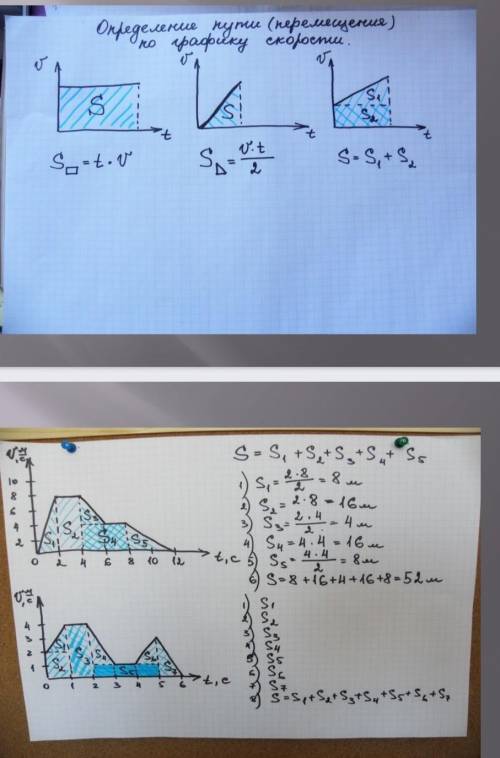 Определение пути (перемещение)
по графику скорости.
v
S
t
v
S
t
v
S₁
S₂
t
S□ = t · v
S◺ = v·t/2
S = S₁ + S₂
v, м/с
10
8
6
4
2
0 2 4 6 8 10 12 t, c
S₁ S₂ S₃ S₄ S₅
S = S₁ + S₂ + S₃ + S₄ + S₅
1) S₁ = 2·8/2 = 8 м
2) S₂ = 2·8 = 16 м
3) S₃ = 2·4/2 = 4 м
4) S₄ = 4·4 = 16 м
5) S₅ = 4·4/2 = 8 м
6) S = 8 + 16 + 4 + 16 + 8 = 52 м
v, м/с
4
3
2
1
0 1 2 3 4 5 6 t, c
S₁ S₂ S₃ S₄ S₅ S₆ S₇
1) S₁
2) S₂
3) S₃
4) S₄
5) S₅
6) S₆
7) S₇
8) S = S₁ + S₂ + S₃ + S₄ + S₅ + S₆ + S₇